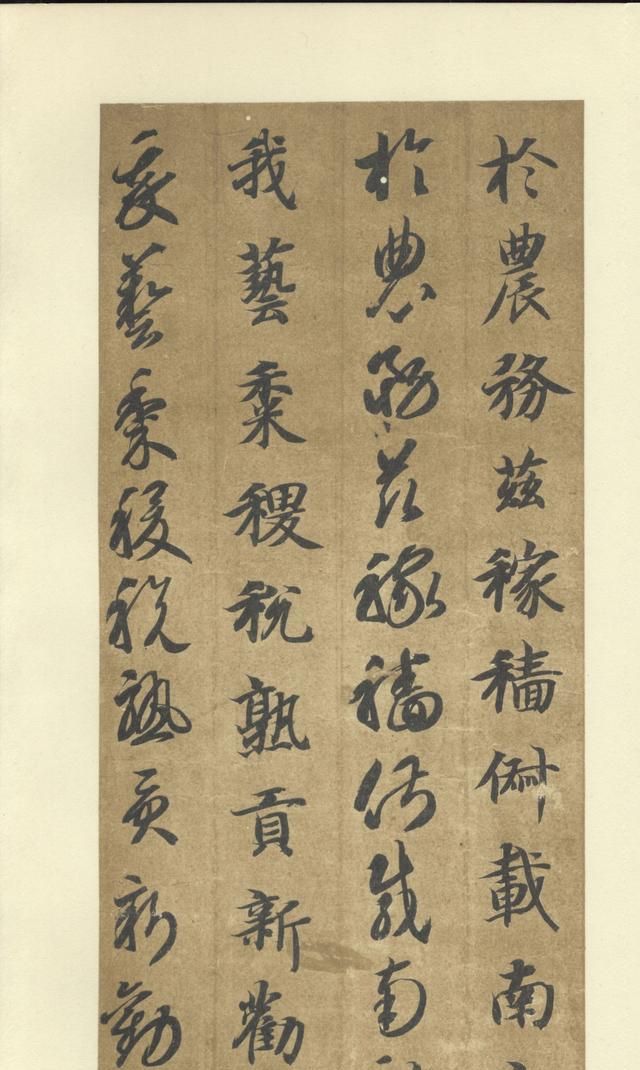 於農務茲稼穡俶載南
於農務茲稼穡俶載南
我藝黍稷稅熟貢新勸
我藝黍稷稅熟貢新勸